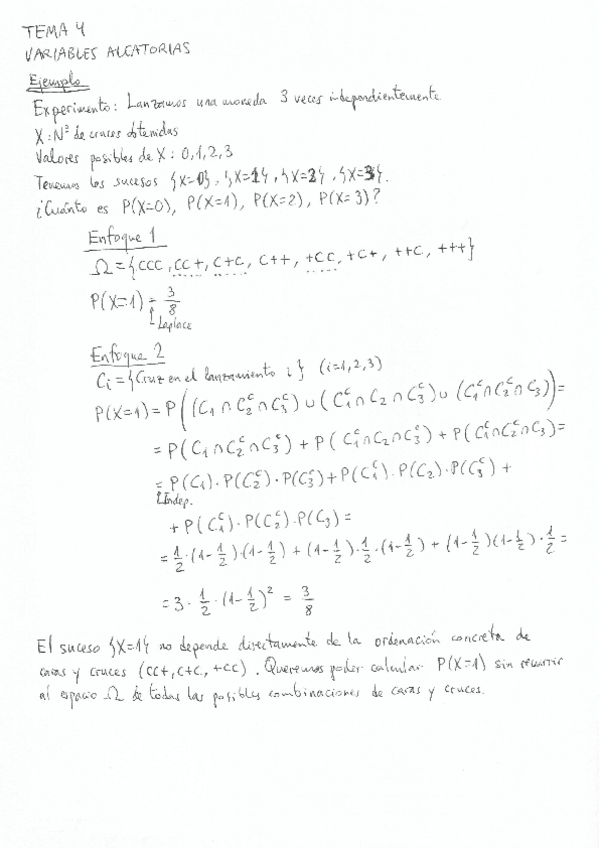 TEMA 4
VARIABLES ALEATORIAS
Ejemplo
Experimento: Lanzamos una moneda 3 veces independientemente
X: Nº de cruces obtenidas
Valores posibles de X: 0, 1, 2, 3
Tenemos los sucesos {X=0}, {X=1}, {X=2}, {X=3}.
¿Cuánto es P(X=0), P(X=1), P(X=2), P(X=3)?
Enfoque 1
Ω = {CCC, CC+, C+C, C++, +CC, +C+, ++C, +++}
P(X=1) = 3/8
↑ Laplace
Enfoque 2
Ci = {Cruz en el lanzamiento i} (i=1,2,3)
P(X=1) = P((C₁ ∩ C₂ᶜ ∩ C₃ᶜ) ∪ (C₁ᶜ ∩ C₂ ∩ C₃ᶜ) ∪ (C₁ᶜ ∩ C₂ᶜ ∩ C₃)) =
= P(C₁ ∩ C₂ᶜ ∩ C₃ᶜ) + P(C₁ᶜ ∩ C₂ ∩ C₃ᶜ) + P(C₁ᶜ ∩ C₂ᶜ ∩ C₃) =
= P(C₁) · P(C₂ᶜ) · P(C₃ᶜ) + P(C₁ᶜ) · P(C₂) · P(C₃ᶜ) +
↑ Indep.
+ P(C₁ᶜ) · P(C₂ᶜ) · P(C₃) =
= 1/2 · (1-1/2) · (1-1/2) + (1-1/2) · 1/2 · (1-1/2) + (1-1/2) (1-1/2) · 1/2 =
= 3 · 1/2 · (1-1/2)² = 3/8
El suceso {X=1} no depende directamente de la ordenación concreta de
caras y cruces (CC+, C+C, +CC). Queremos poder calcular P(X=1) sin recurrir
al espacio Ω de todas las posibles combinaciones de caras y cruces.